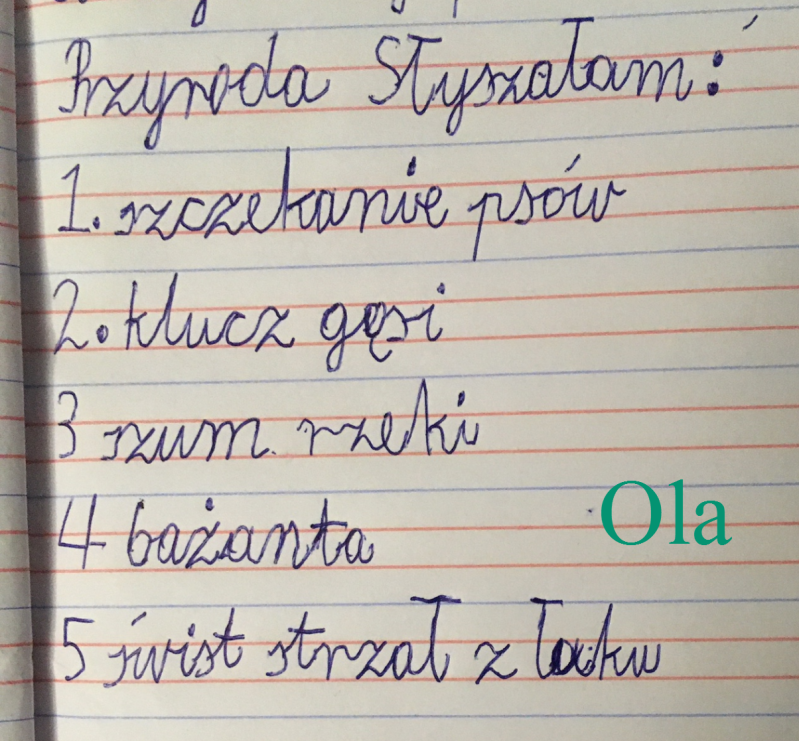 Przyroda Słyszałam:
1. szczekanie psów
2. klucz gęsi
3 szum rzeki
4 bażanta
Ola
5 świst strzał z łuku